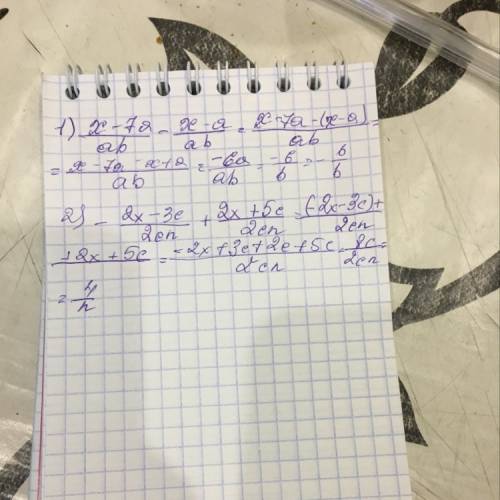 1) (x-7a)/(ab) - (x-a)/(ab) = (x-7a-(x-a))/(ab) =
= (x-7a-x+a)/(ab) = (-6a)/(ab) = (-6)/b = - 6/b
2) - (2x-3c)/(2cn) + (2x+5c)/(2cn) = (-2x-3c)+/(2cn)
+2x+5c = (-2x+3c+2c+5c)/(2cn) = 8c/(2cn)
= 4/n